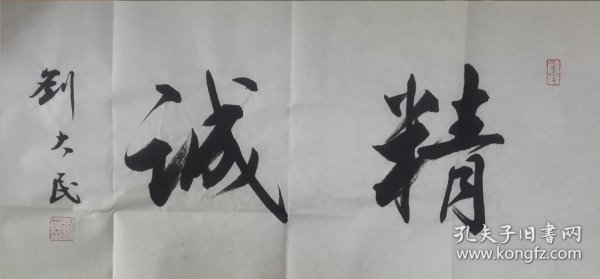 精誠
劉大民
孔夫子旧书网
www.kongfz.com